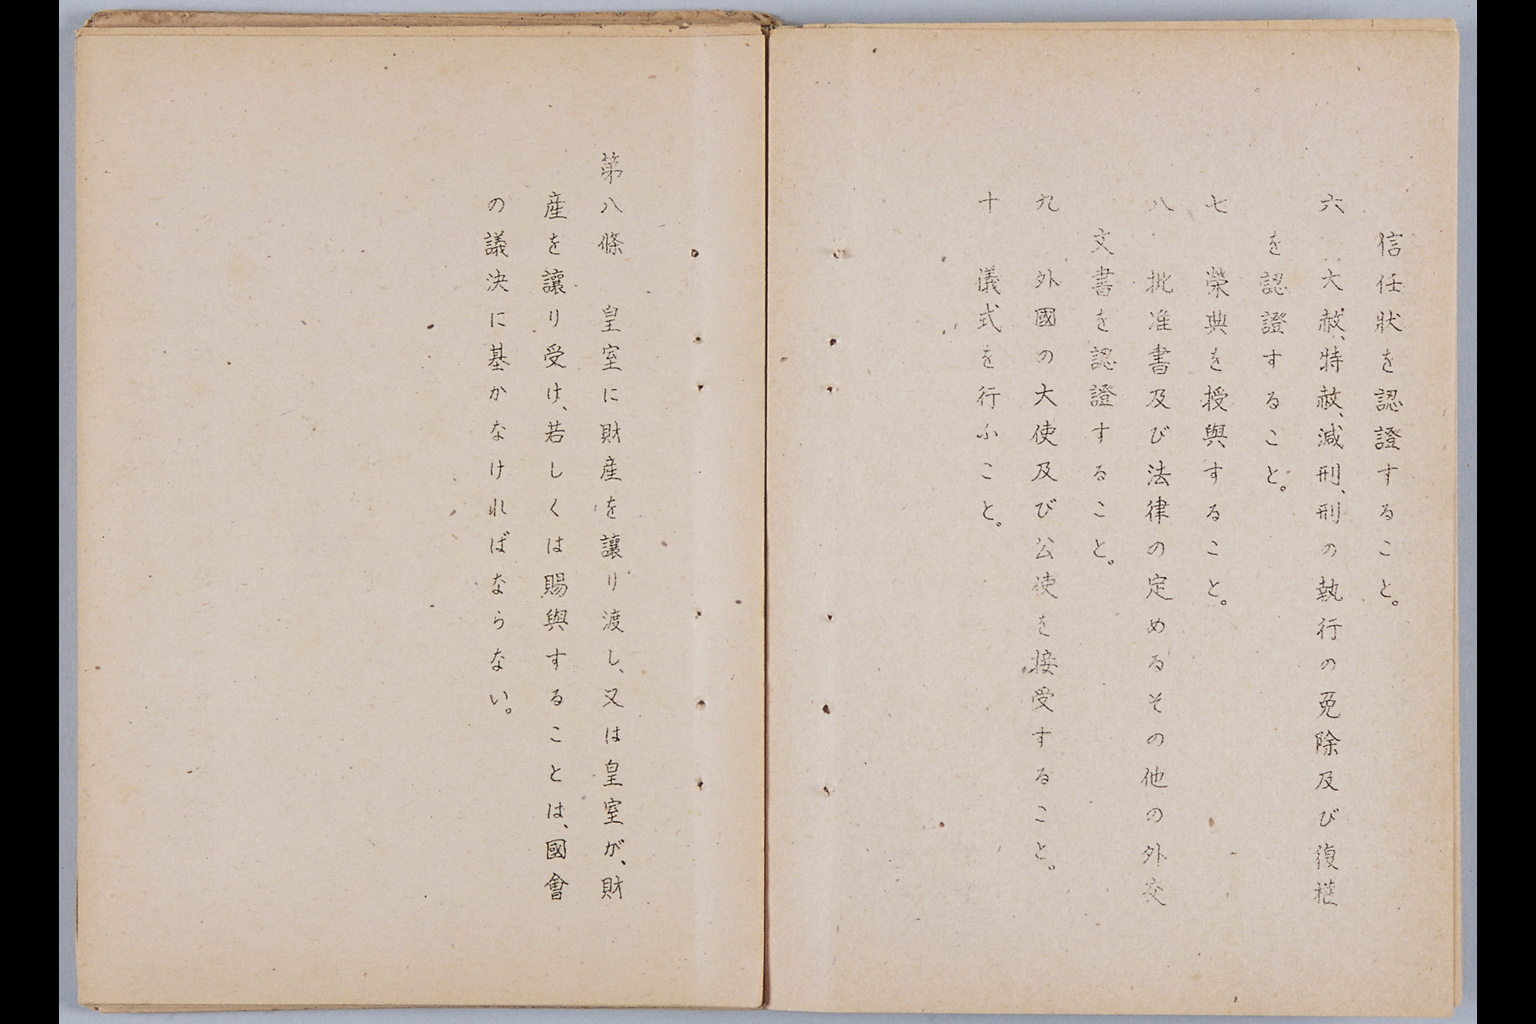 信任狀を認證すること。
六　大赦、特赦、減刑、刑の執行の免除及び復權
を認證すること。
七　榮典を授與すること。
八　批准書及び法律の定めるその他の外交
文書を認證すること。
九　外國の大使及び公使を接受すること。
十　儀式を行ふこと。
第八條　皇室に財産を讓り渡し、又は皇室が、財
産を讓り受け、若しくは賜與することは、國會
の議決に基かなければならない。